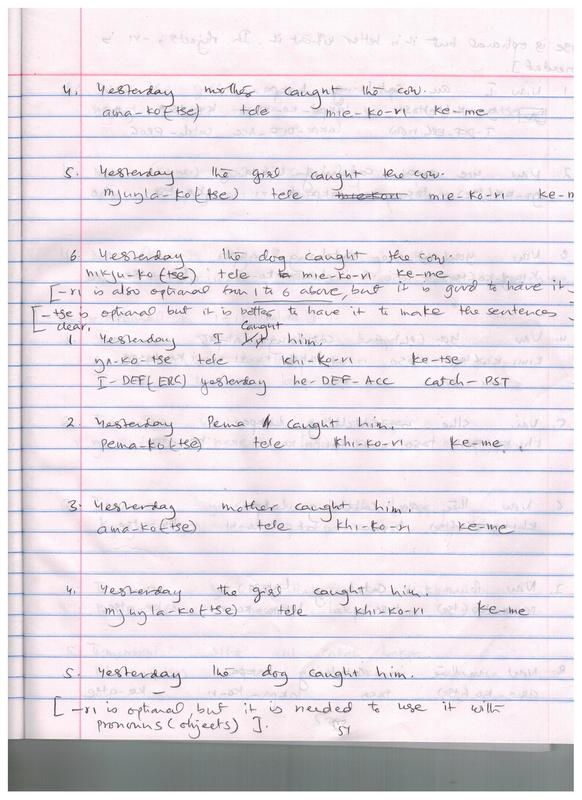 4. Yesterday mother caught the cow.
ama-ko(tse) tele mie-ko-ri ke-me
5. Yesterday the girl caught the cow.
mjuŋla-ko(tse) tele mie-ko-ri ke-m
6. Yesterday the dog caught the cow.
nikju-ko(tse) tele mie-ko-ri ke-me
[-ri is also optional from 1 to 6 above, but it is good to have it
[-tse is optional but it is better to have it to make the sentences
clear.
1. Yesterday I caught him.
ŋa-ko-tse tele khi-ko-ri ke-tse
I-DEF(ERG) yesterday he-DEF-ACC catch-PST
2. Yesterday Pema caught him.
Pema-ko(tse) tele khi-ko-ri ke-me.
3. Yesterday mother caught him.
ama-ko(tse) tele khi-ko-ri ke-me
4. Yesterday the girl caught him.
mjuŋla-ko(tse) tele khi-ko-ri ke-me
5. Yesterday the dog caught him.
[-ri is optional, but it is needed to use it with
pronouns (objects)].
51